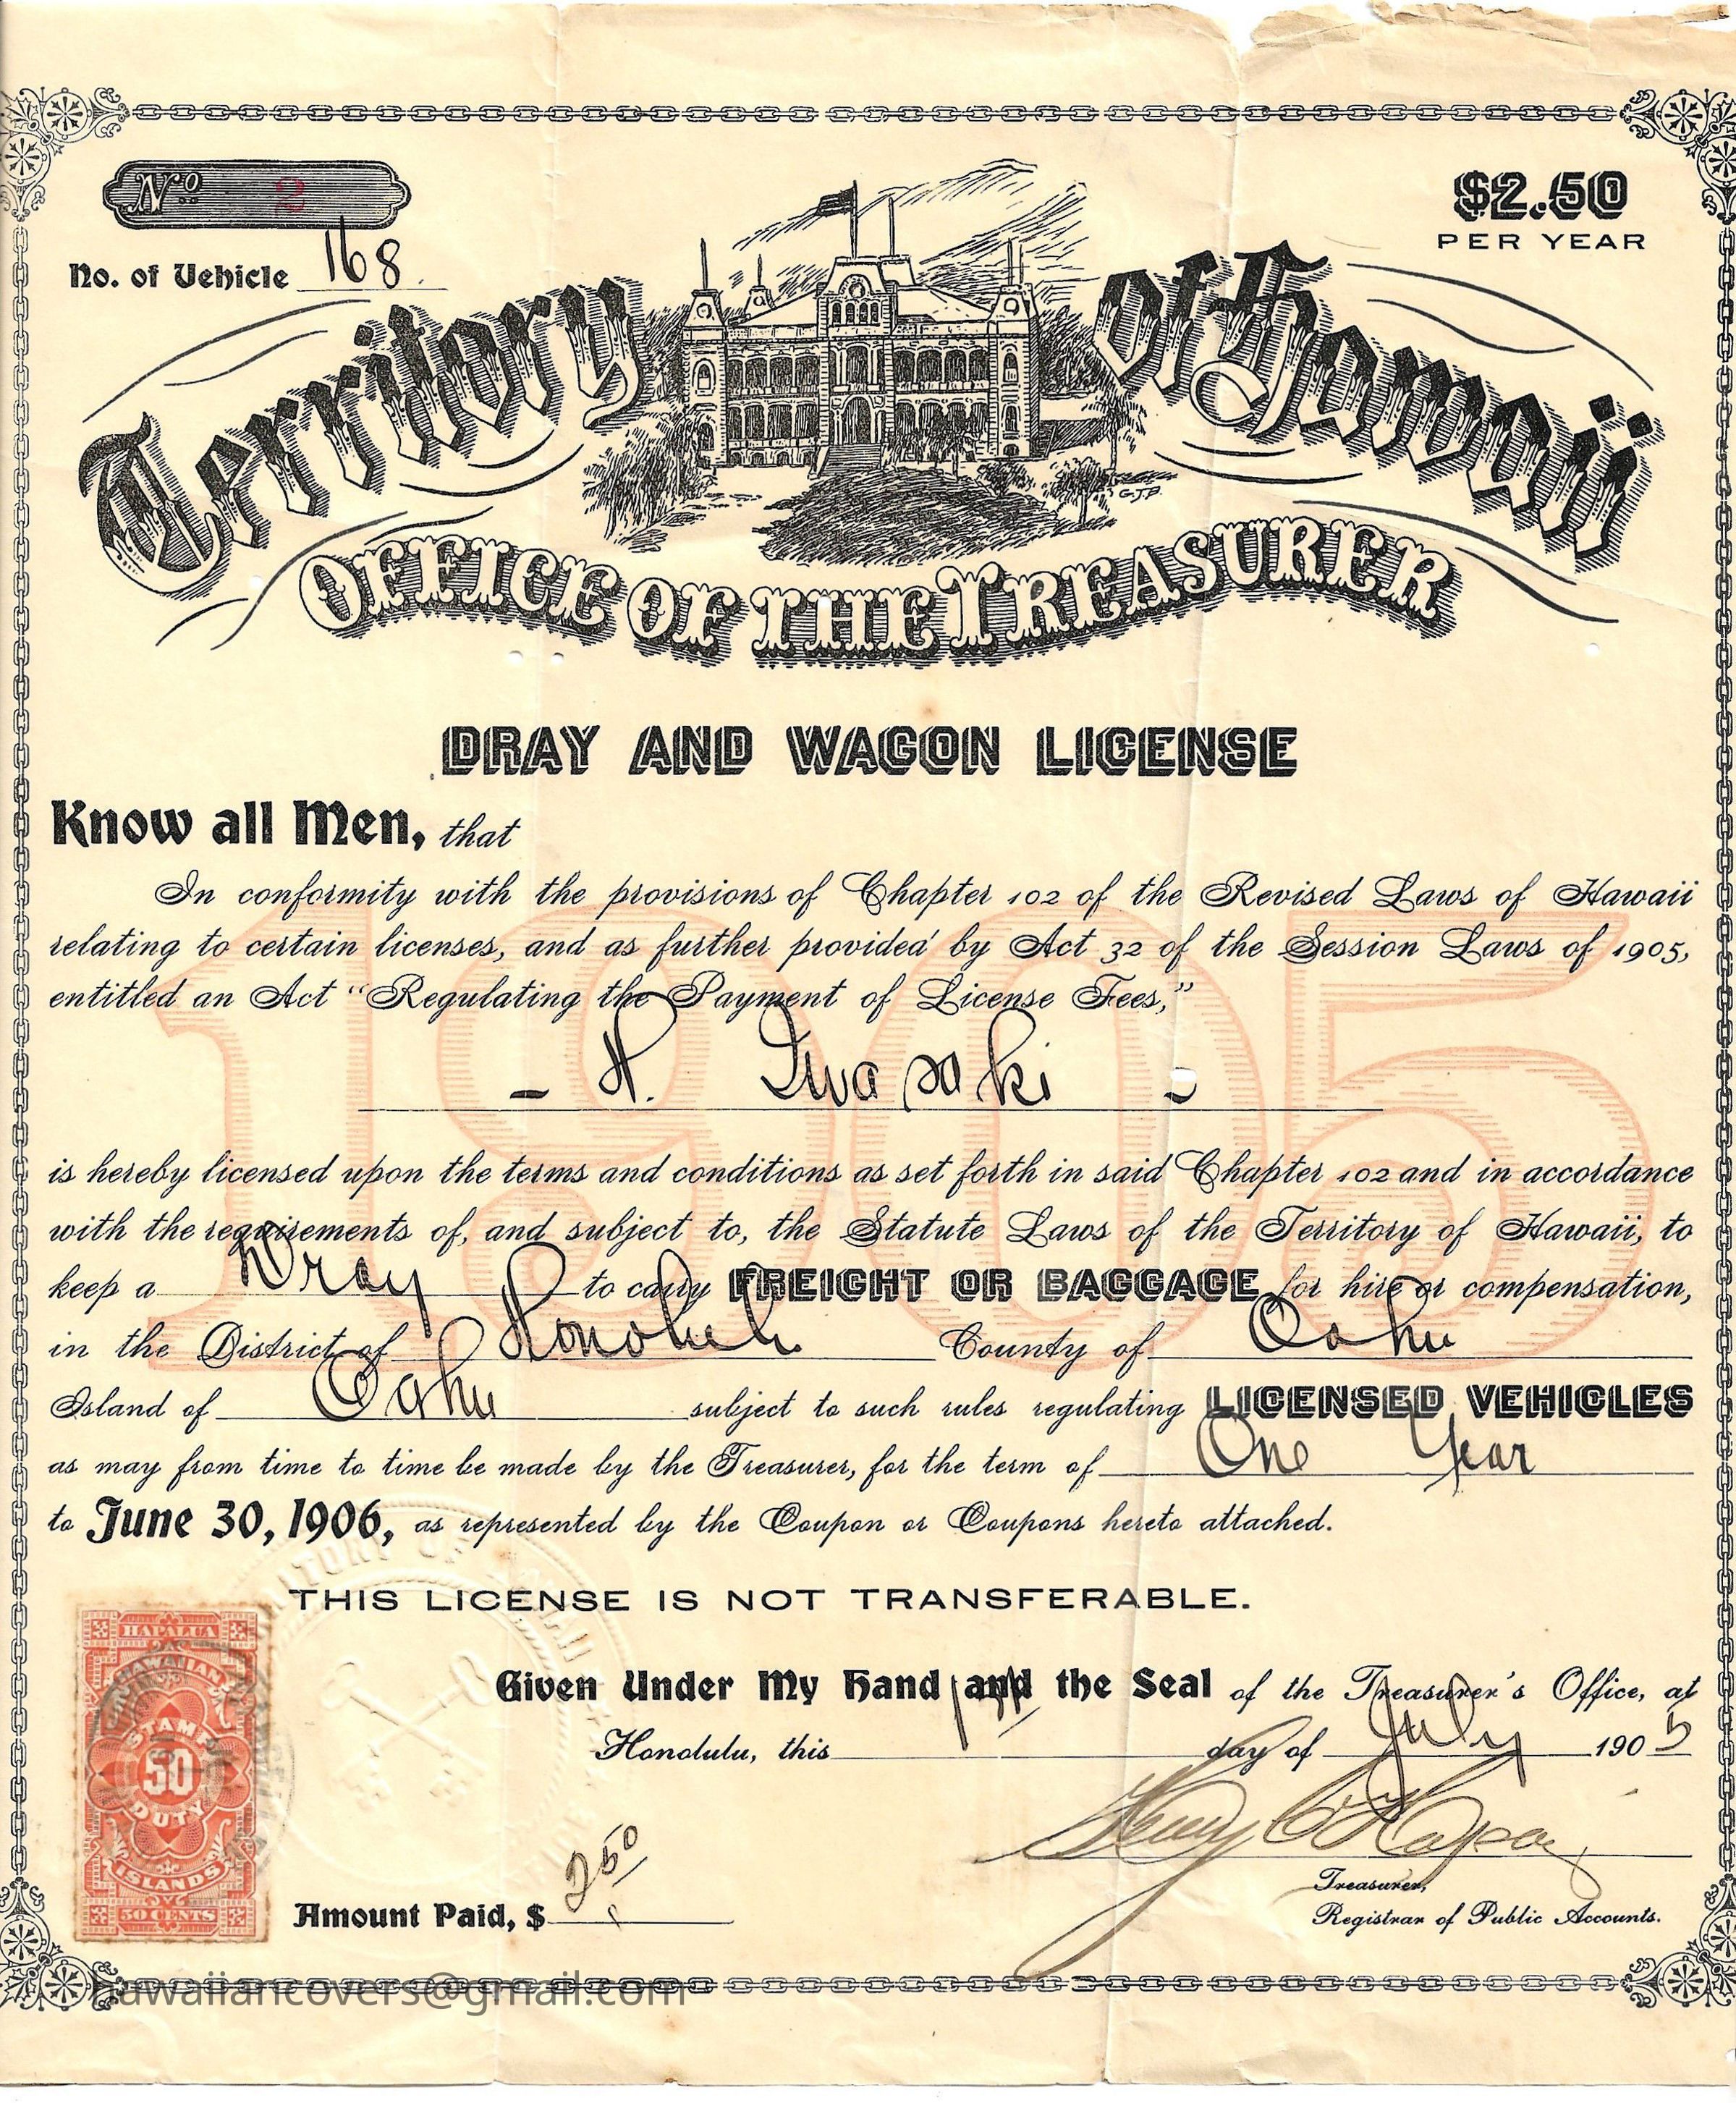 No. 2
$2.50
PER YEAR
No. of Vehicle 168
Territory of Hawaii
G.J.B.
OFFICE OF THE TREASURER
DRAY AND WAGON LICENSE
Know all Men, that
In conformity with the provisions of Chapter 102 of the Revised Laws of Hawaii
relating to certain licenses, and as further provided by Act 32 of the Session Laws of 1905,
entitled an Act “Regulating the Payment of License Fees,”
1905
- H. Iwasaki -
is hereby licensed upon the terms and conditions as set forth in said Chapter 102 and in accordance
with the requirements of, and subject to, the Statute Laws of the Territory of Hawaii, to
keep a Dray to carry FREIGHT OR BAGGAGE for hire or compensation,
in the District of Honolulu County of Oahu
Island of Oahu subject to such rules regulating LICENSED VEHICLES
as may from time to time be made by the Treasurer, for the term of One Year
to June 30, 1906, as represented by the Coupon or Coupons hereto attached.
THIS LICENSE IS NOT TRANSFERABLE.
Given Under My Hand and the Seal of the Treasurer's Office, at
Honolulu, this 1st day of July 1905
HAPALUA
HAWAIIAN
STAMP
50
DUTY
ISLANDS
50 CENTS
Amount Paid, $ 2.50
Treasurer,
Registrar of Public Accounts.
hawaiiancovers@gmail.com